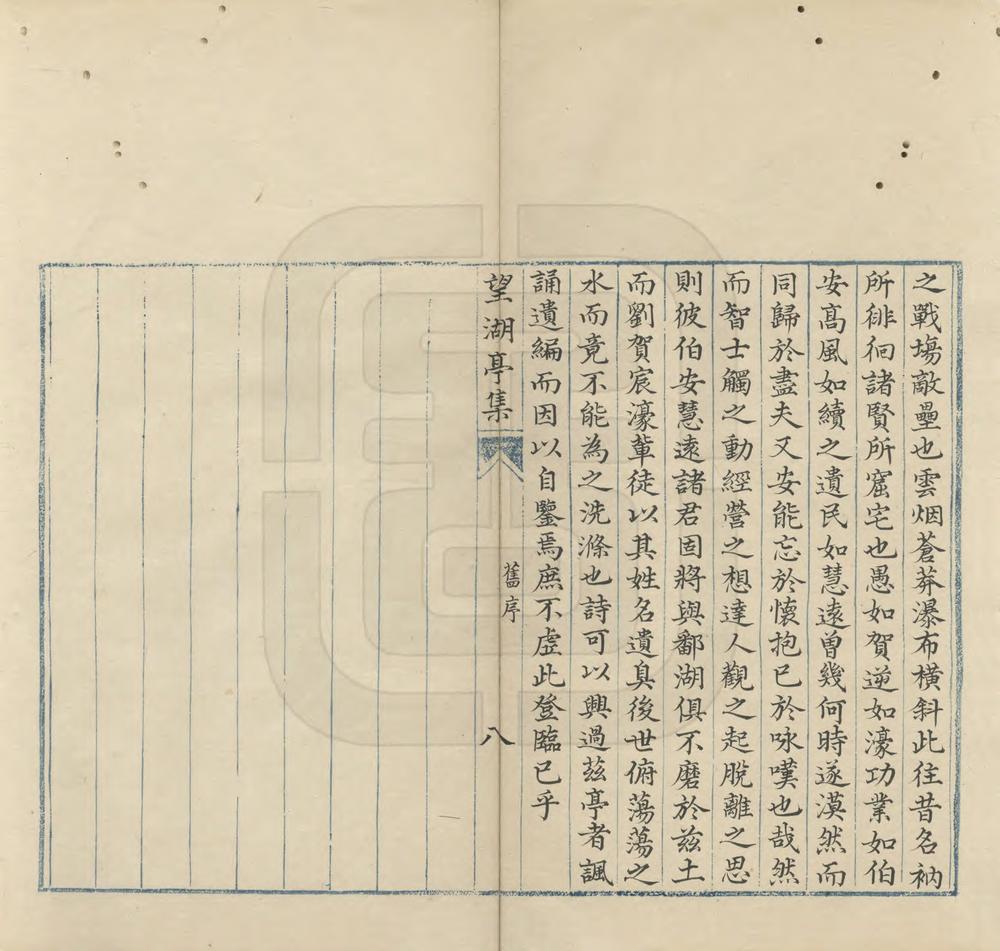 之戰塲敵壘也雲烟蒼莽瀑布横斜此往昔名衲
所徘徊諸賢所窟宅也愚如賀逆如濠功業如伯
安髙風如續之遺民如慧逺曽幾何時遂漠然而
同歸於盡夫又安能忘於懐抱已於咏嘆也哉然
而智士觸之動經營之想達人觀之起脫離之思
則彼伯安慧逺諸君固將與鄱湖俱不磨於兹土
而劉賀宸濠軰徒以其姓名遺臭後世俯蕩蕩之
水而竟不能為之洗滌也詩可以興過兹亭者諷
誦遺編而因以自鑒焉庶不虛此登臨已乎
望湖亭集
舊序
八